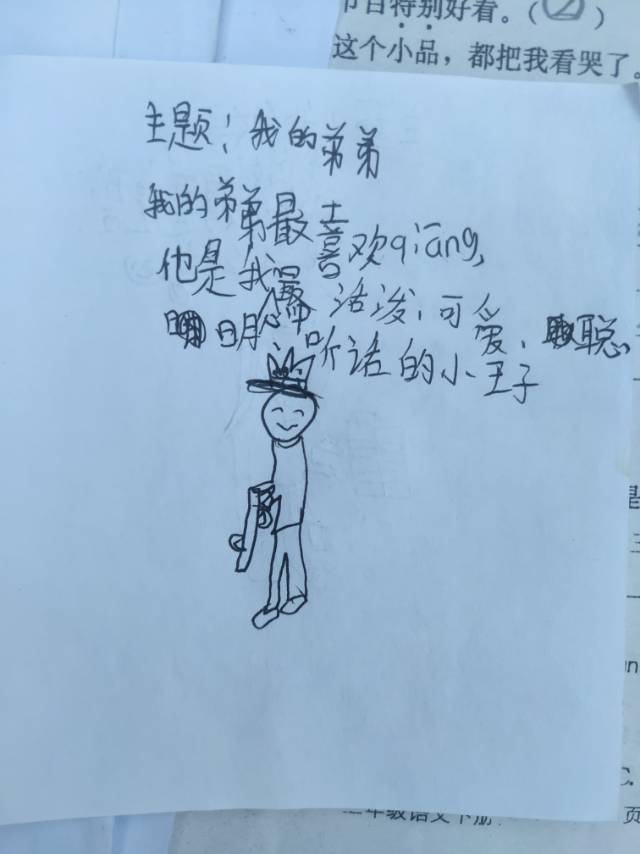 节日特别好看。（2）
这个小品，都把我看哭了。
主题：我的弟弟
我的弟弟最喜欢qiāng,
他是我最帅、活泼、可爱、聪
明、听话的小王子
是
三
C.
二年级语文下册
页